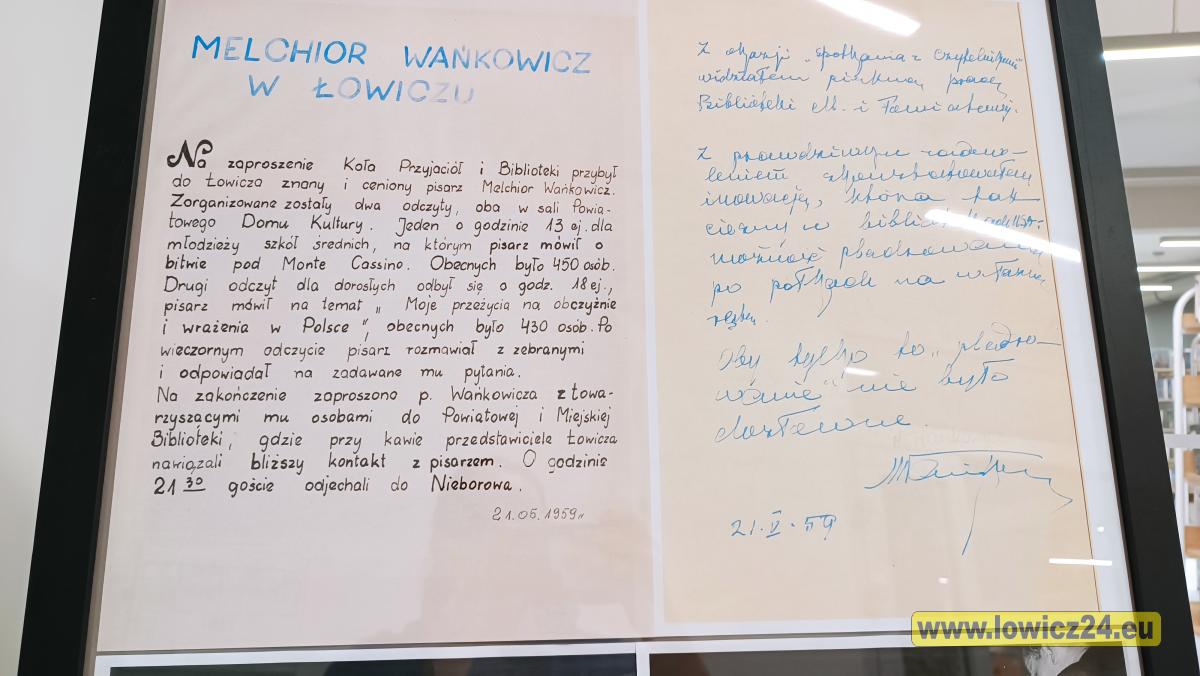 MELCHIOR WAŃKOWICZ
W ŁOWICZU
Na zaproszenie Koła Przyjaciół i Biblioteki przybył
do Łowicza znany i ceniony pisarz Melchior Wańkowicz.
Zorganizowane zostały dwa odczyty, oba w sali Powia-
towego Domu Kultury. Jeden o godzinie 13 ej. dla
młodzieży szkół średnich, na którym pisarz mówił o
bitwie pod Monte Cassino. Obecnych było 450 osób.
Drugi odczyt dla dorosłych odbył się o godz. 18 ej.,
pisarz mówił na temat „Moje przeżycia na obczyźnie
i wrażenia w Polsce", obecnych było 430 osób. Po
wieczornym odczycie pisarz rozmawiał z zebranymi
i odpowiadał na zadawane mu pytania.
Na zakończenie zaproszono p. Wańkowicza z towa-
rzyszącymi mu osobami do Powiatowej i Miejskiej
Biblioteki, gdzie przy kawie przedstawiciele Łowicza
nawiązali bliższy kontakt z pisarzem. O godzinie
21 30 goście odjechali do Nieborowa.
21.05.1959
Z okazji „spotkania z czytelnikami"
widziałem piękną pracę
Biblioteki M. i Powiatowej.
Z prawdziwym zadowo-
leniem skonstatowałem
inowację, która tak
cieszy w bibliotekach
możność plądrowania
po półkach na własną
rękę.
Oby tylko to „plądro-
wanie" nie było
dosłowne.
21.V.59
www.lowicz24.eu